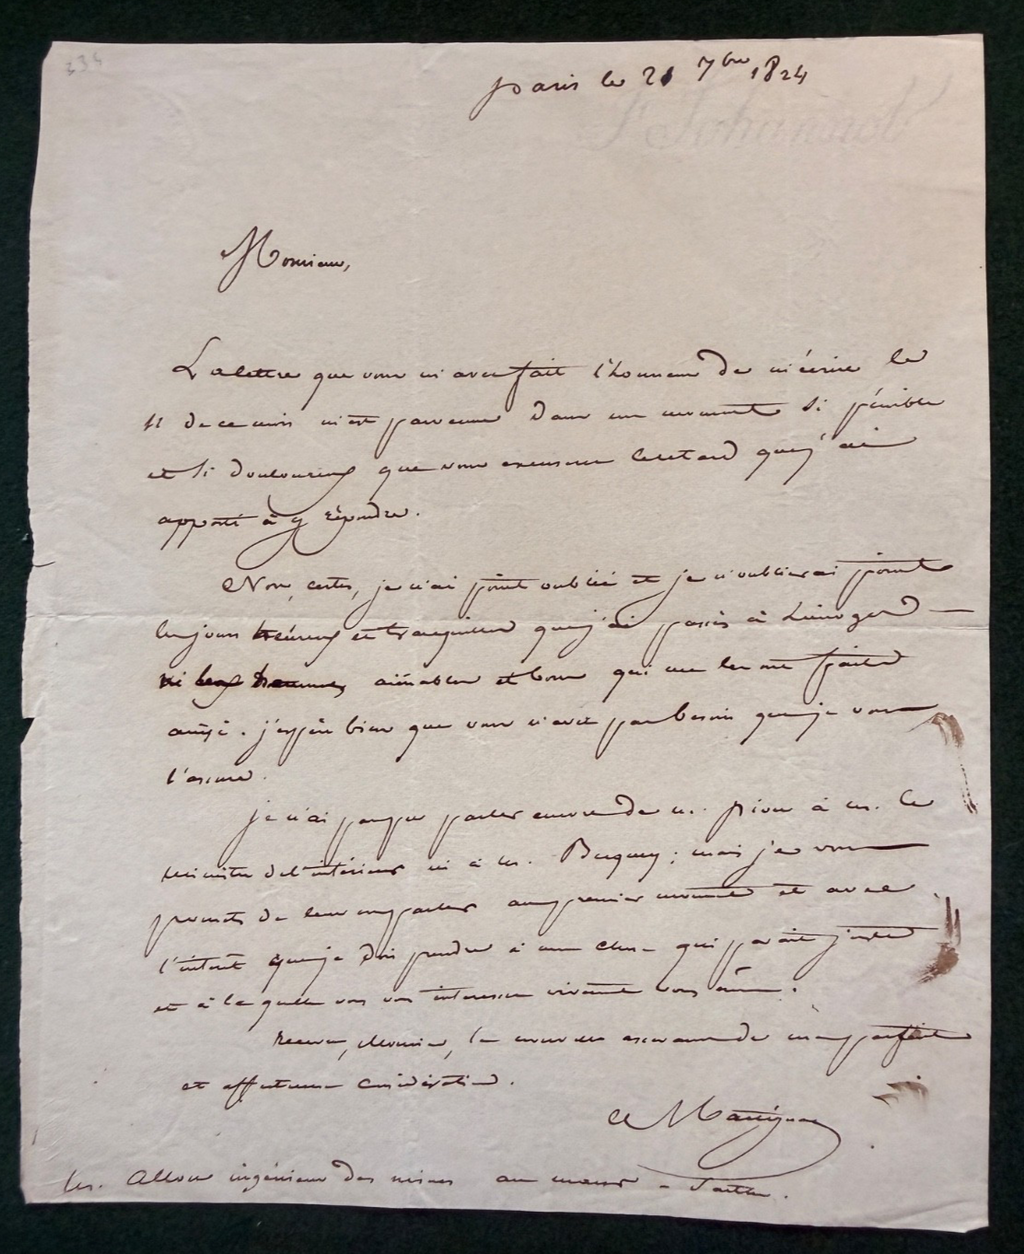 234
paris le 21 7bre 1824
Johannot
Monsieur,
La lettre que vous m'avez fait l'honneur de m'écrire le
11 de ce mois m'est parvenue dans un moment si pénible
et si douloureux que vous excuserez le retard que j'ai
apporté à y répondre.
Non, certes, je n'ai point oublié et je n'oublierai point
les jours heureux et tranquilles que j'ai passés à Limoges
ni les hommes aimables et bons qui me les ont faits
ainsi. j'espère bien que vous n'avez pas besoin que je vous
l'assure.
je n'ai pas pu parler encore de M. à M. le
ministre de l'intérieur ni à M. Becquey; mais je vous
promets de leur en parler au premier moment et avec
l'intérêt que je dois prendre à une chose qui parait juste
et à laquelle vous vous intéressez vivement vous même.
Recevez, Monsieur, la nouvelle assurance de ma parfaite
et affectueuse considération.
de Martignac
M. Allou ingénieur des mines au mans - Sarthe.